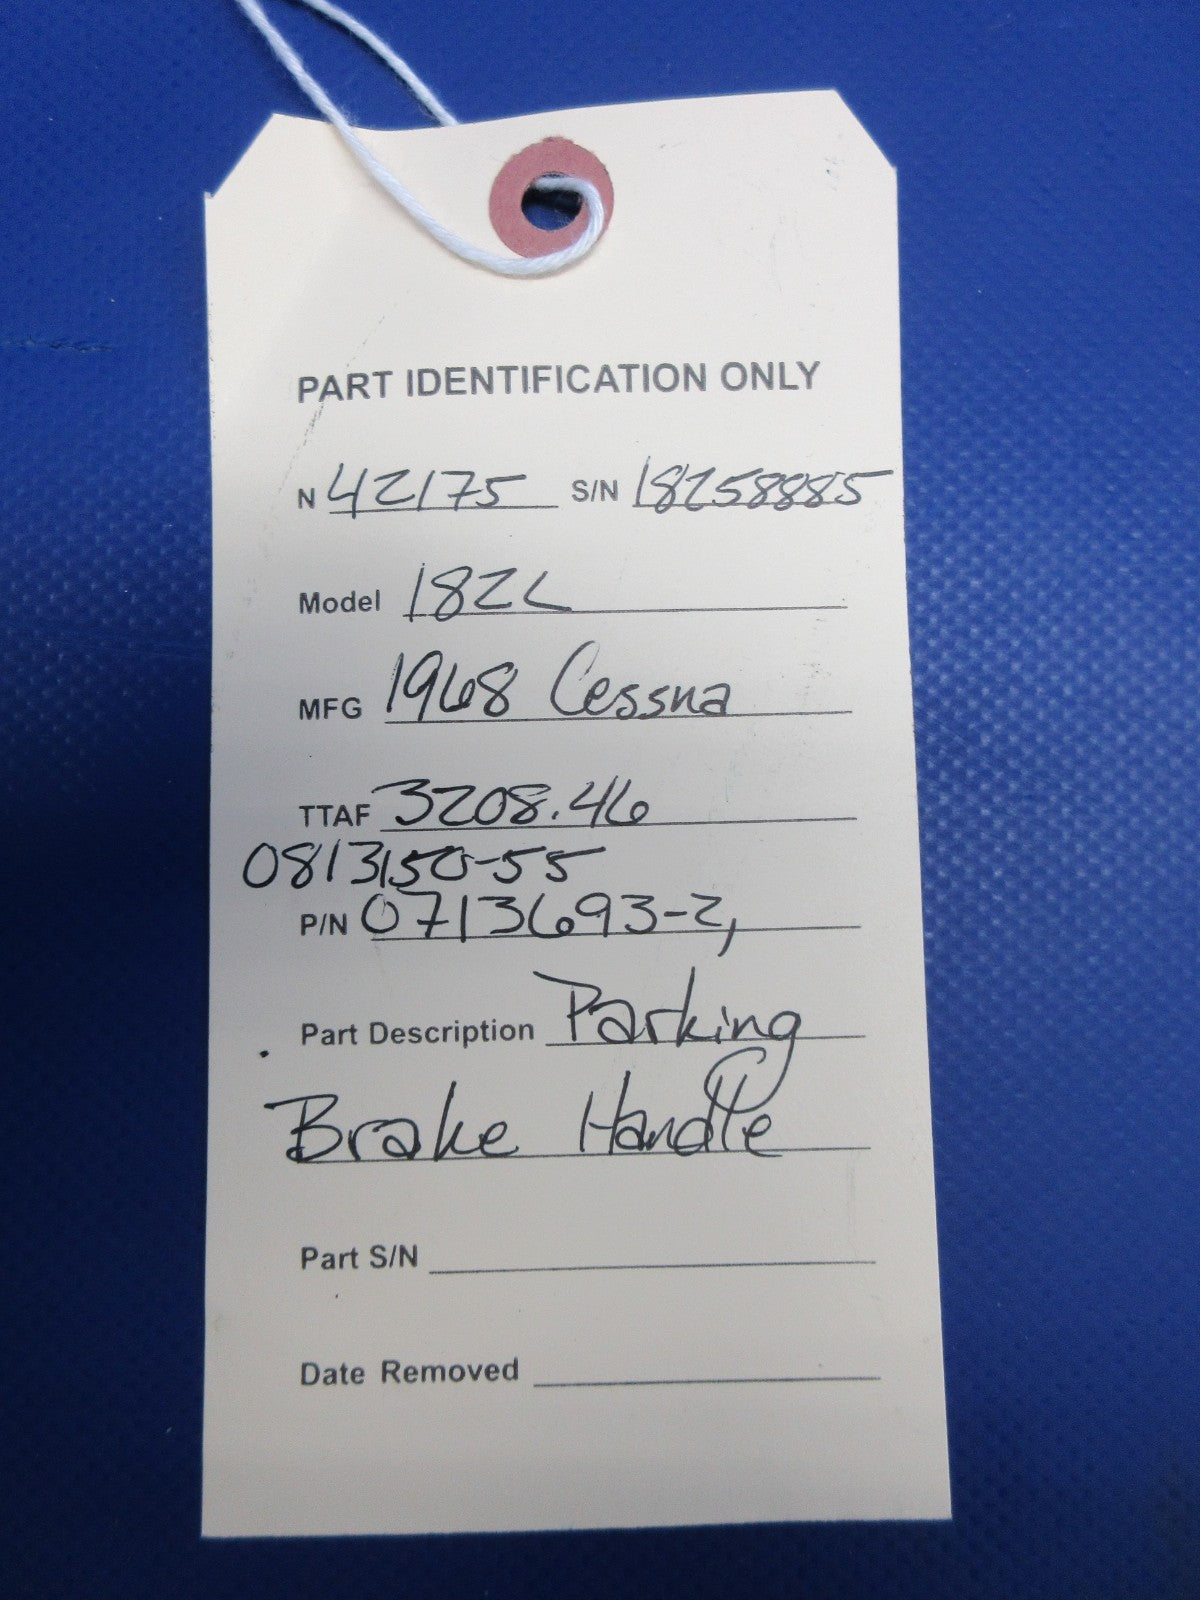 PART IDENTIFICATION ONLY
N 42175 S/N 18258885
Model 182L
MFG 1968 Cessna
TTAF 3208.46
0813150-55
P/N 0713693-2,
Part Description Parking
Brake Handle
Part S/N
Date Removed